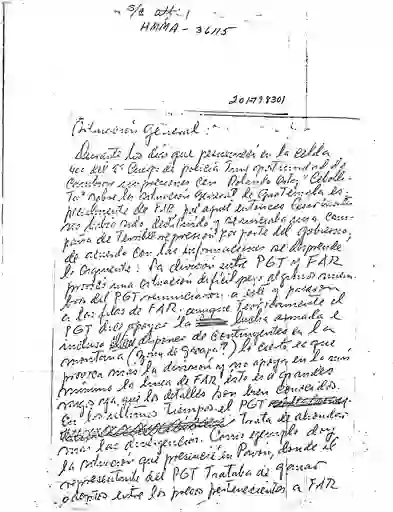 S/C att 1
HMMA-36115
201798301
Situación General:
Durante los dias que permanecí en la celda
del 4º Cuerpo de policía tuve oportunidad de
cambiar impresiones con Rolando
sobre la situación General de Guatemala es-
pecialmente de FAR, por aquel entonces
nos habia sido destituido y se iniciaba una cam-
paña de Terrible represion por parte del gobierno;
de acuerdo con las informaciones se desprende
lo siguiente: La división entre PGT y FAR
provocó una situación dificil pero algunos miem-
bros del PGT renunciaron a este y pasaron
a las filas de FAR, aunque Teoricamente el
PGT dice apoyar la lucha armada e
incluso dispone de contingentes en la
montaña (Zona de Gerapa?) lo cierto es que
provoca mas la división y no apoya en lo más
minimo la linea de FAR esto es a grandes
rasgos ya que los detalles son bien conocidos.
En los ultimos tiempos el PGT
trata de ahondar
mas las divergencias. Como ejemplo doy
la situación que presencié en Pavon, donde el
representante del PGT Trataba de ganar
adeptos entre los presos pertenecientes a FAR